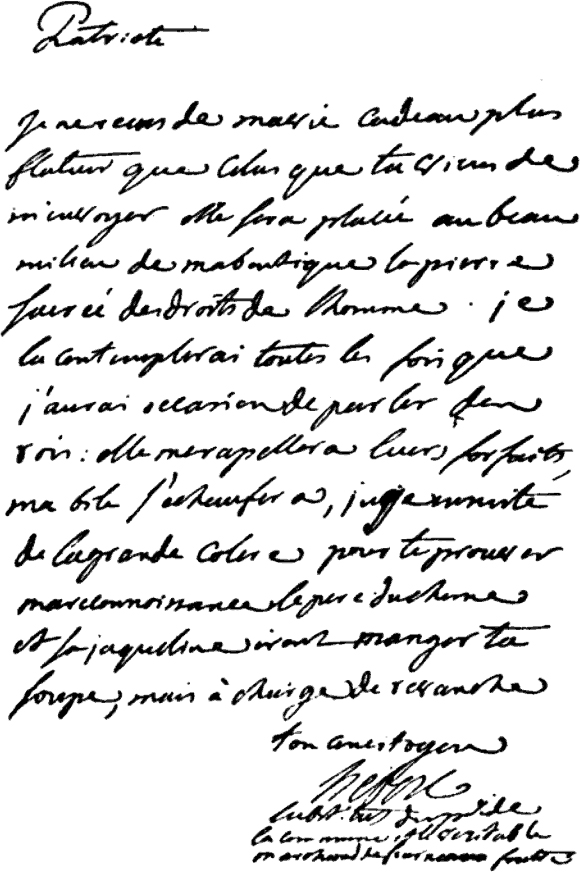 Patriote
je ne recus de ma vie cadeau plus
flateur que celui que tu viens de
m'envoyer elle sera placée au beau
milieu de ma boutique la pierre
sacrée des droits de l'homme. je
la contemplerai toutes les fois que
j'aurai occasion de parler des
rois: elle me rapellera leurs forfaits,
ma bile s'échaufera, juge ensuite
de la grande colere pour te prouver
ma reconnoissance le pere duchesne
et sa jaqueline iront manger ta
soupe, mais à charge de revanche
ton concitoyen
hebert
substitut du de
la commune et véritable
marchand de fourneaux